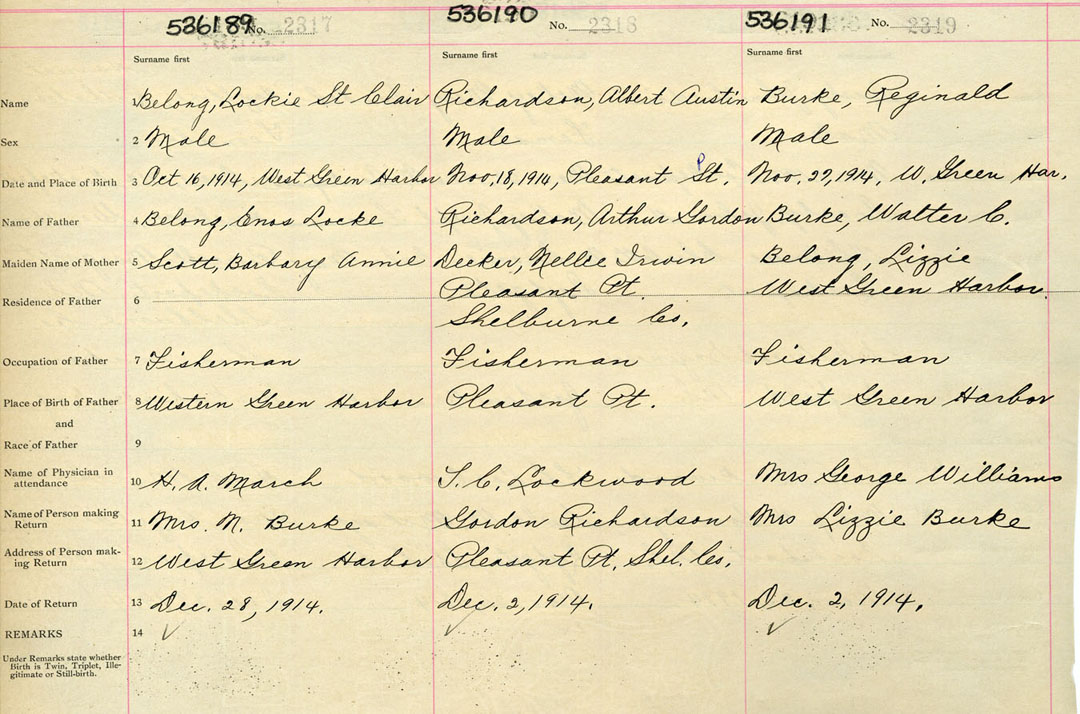 536189 No. 2317 536190 No. 2318 536191 No. 2319
Surname first Surname first Surname first
Name 1 Belong, Lockie St Clair Richardson, Albert Austin Burke, Reginald
Sex 2 Male Male Male
Date and Place of Birth 3 Oct 16, 1914, West Green Harbor Nov. 18, 1914, Pleasant St. P Nov. 27, 1914, W. Green Har.
Name of Father 4 Belong, Enos Locke Richardson, Arthur Gordon Burke, Walter C.
Maiden Name of Mother 5 Scott, Barbary Annie Decker, Nellie Irwin Belong, Lizzie
Residence of Father 6 Pleasant Pt. West Green Harbor.
Shelburne Co.
Occupation of Father 7 Fisherman Fisherman Fisherman
Place of Birth of Father 8 Western Green Harbor Pleasant Pt. West Green Harbor
and
Race of Father 9
Name of Physician in
attendance 10 H. A. March T. C. Lockwood Mrs George Williams
Name of Person making
Return 11 Mrs. N. Burke Gordon Richardson Mrs Lizzie Burke
Address of Person mak-
ing Return 12 West Green Harbor Pleasant Pt. Shel. Co.
Date of Return 13 Dec. 28, 1914. Dec. 2, 1914. Dec. 2, 1914.
REMARKS 14
Under Remarks state whether
Birth is Twin, Triplet, Ille-
gitimate or Still-birth.